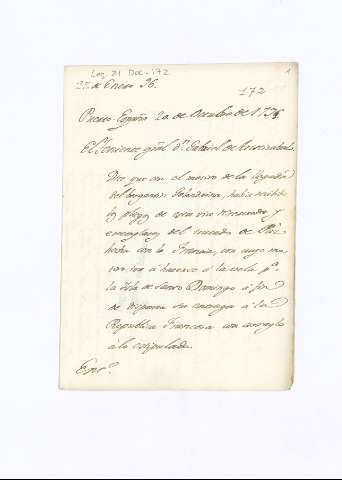 Leg. 21 Doc. 172
22 de Enero 96.
172
1
Puerto-Españo 20 de Octubre de 1795
El Teniente gral dn. Gabriel de Aristizabal.
Dice que con el motivo de la llegada
del bergantin Golondrina, havia recibido
los pliegos de esta via reservada y
exemplares del tratado de Paz
hecha con la Francia, con cuyo mo-
tivo iva á hacerse á la vela pa.
la Isla de Santo Domingo á fin
de disponer su entrega á la
Republica Francesa con arreglo
á lo estipulado.